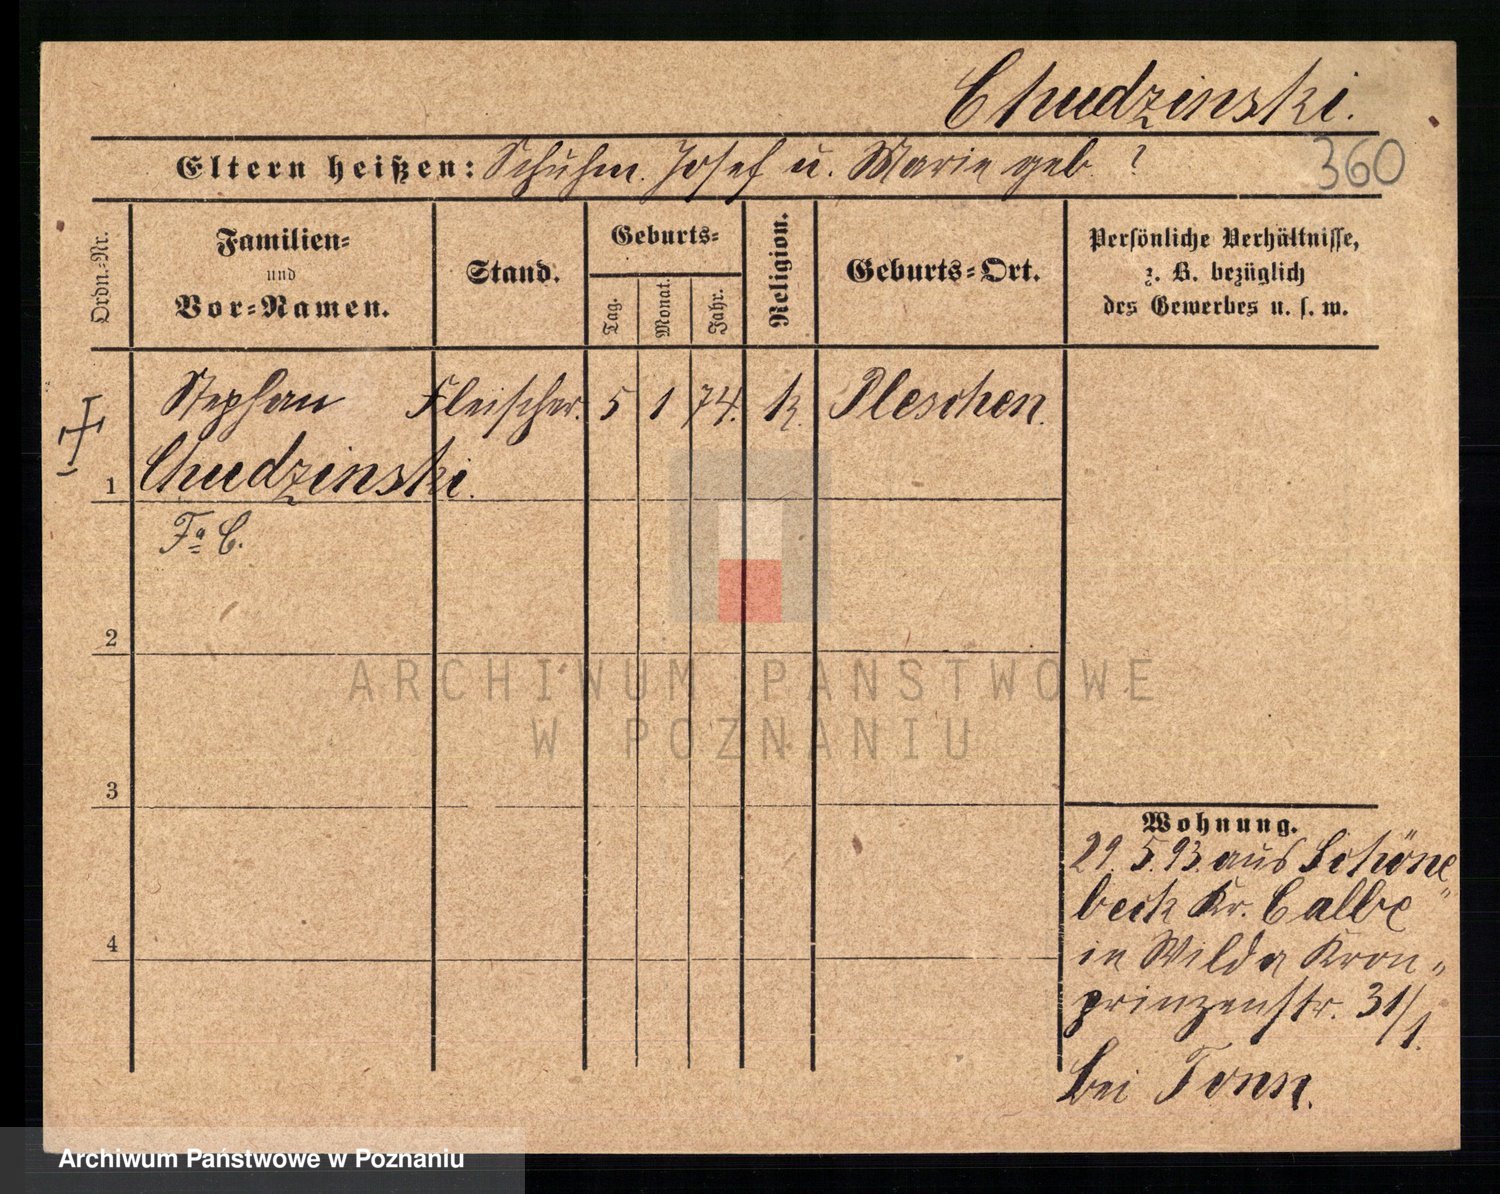 Chudzinski.
Eltern heißen: Schuhm. Josef u. Marie geb. ?
360
Ordn.-Nr.
Familien-
und
Vor-Namen.
Stand.
Geburts-
Tag.
Monat.
Jahr.
Religion.
Geburts-Ort.
Persönliche Verhältnisse,
z. B. bezüglich
des Gewerbes u. s. w.
Stephan Fleischer. 5 1 74. k. Pleschen.
1 Chudzinski.
2
3
4
Wohnung.
29. 5. 93. aus Schöne
beck Kr. Calbe
in Wilda Kron„
prinzenstr. 31/1.
bei Tonn.
ARCHIWUM PAŃSTWOWE
W POZNANIU
Archiwum Państwowe w Poznaniu